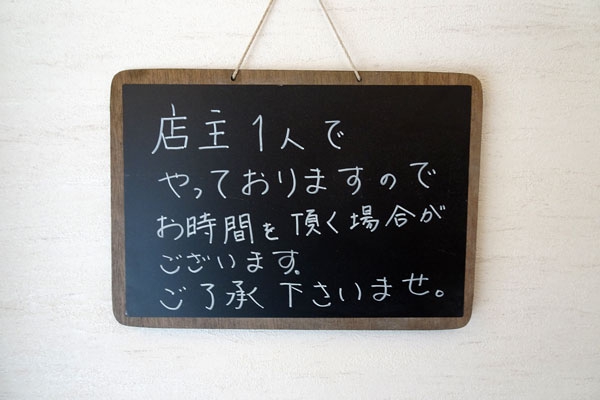 店主1人で
やっておりますので
お時間を頂く場合が
ございます。
ご了承下さいませ。